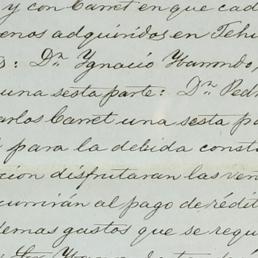 y con Carret en que cad
enos adquiridos en Tehu
s: Dn. Ygnacio
una sesta parte: Dn. Ped
arlos Carret una sesta pa
para la debida const
cion disfrutaran las ven
currirán al pago de rédit
demas gastos que se requ